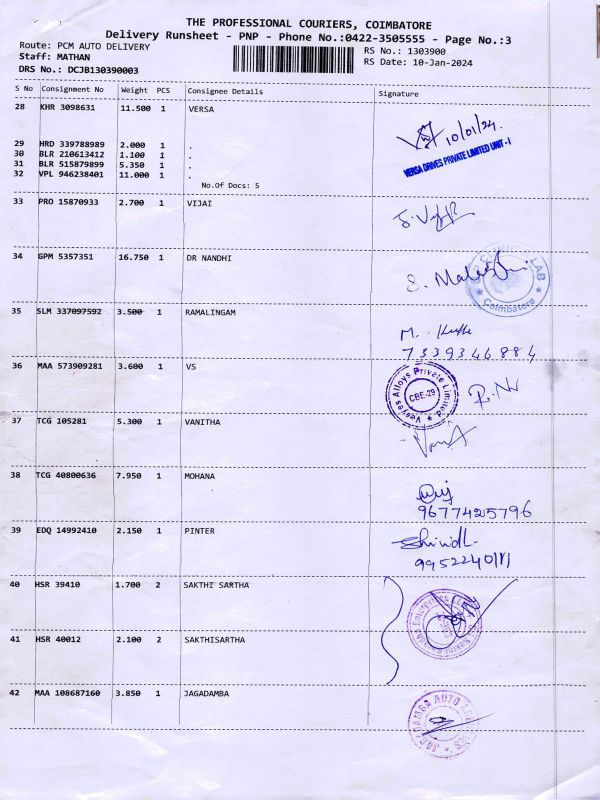 THE PROFESSIONAL COURIERS, COIMBATORE
Delivery Runsheet - PNP - Phone No.:0422-3505555 - Page No.:3
Route: PCM AUTO DELIVERY
RS No.: 1303900
Staff: MATHAN
RS Date: 10-Jan-2024
DRS No.: DCJB130390003
S No Consignment No Weight PCS Consignee Details Signature
28 KHR 3098631 11.500 1 VERSA
10/01/24.
VERSA DRIVES PRIVATE LIMITED UNIT-I
29 HRD 339788989 2.000 1 .
30 BLR 210613412 1.100 1 .
31 BLR 515879899 5.350 1 .
32 VPL 946238401 11.000 1 .
No.Of Docs: 5
33 PRO 15870933 2.700 1 VIJAI
34 GPM 5357351 16.750 1 DR NANDHI
LAB
Coimbatore
35 SLM 337097592 3.500 1 RAMALINGAM
7339346884
36 MAA 573909281 3.600 1 VS
Veeyes Alloys Private Limited
CBE-29
37 TCG 105281 5.300 1 VANITHA
38 TCG 40800636 7.950 1 MOHANA
9677425796
39 EDQ 14992410 2.150 1 PINTER
40 HSR 39410 1.700 2 SAKTHI SARTHA
41 HSR 40012 2.100 2 SAKTHISARTHA
42 MAA 108687160 3.850 1 JAGADAMBA
JAGADAMBA AUTO